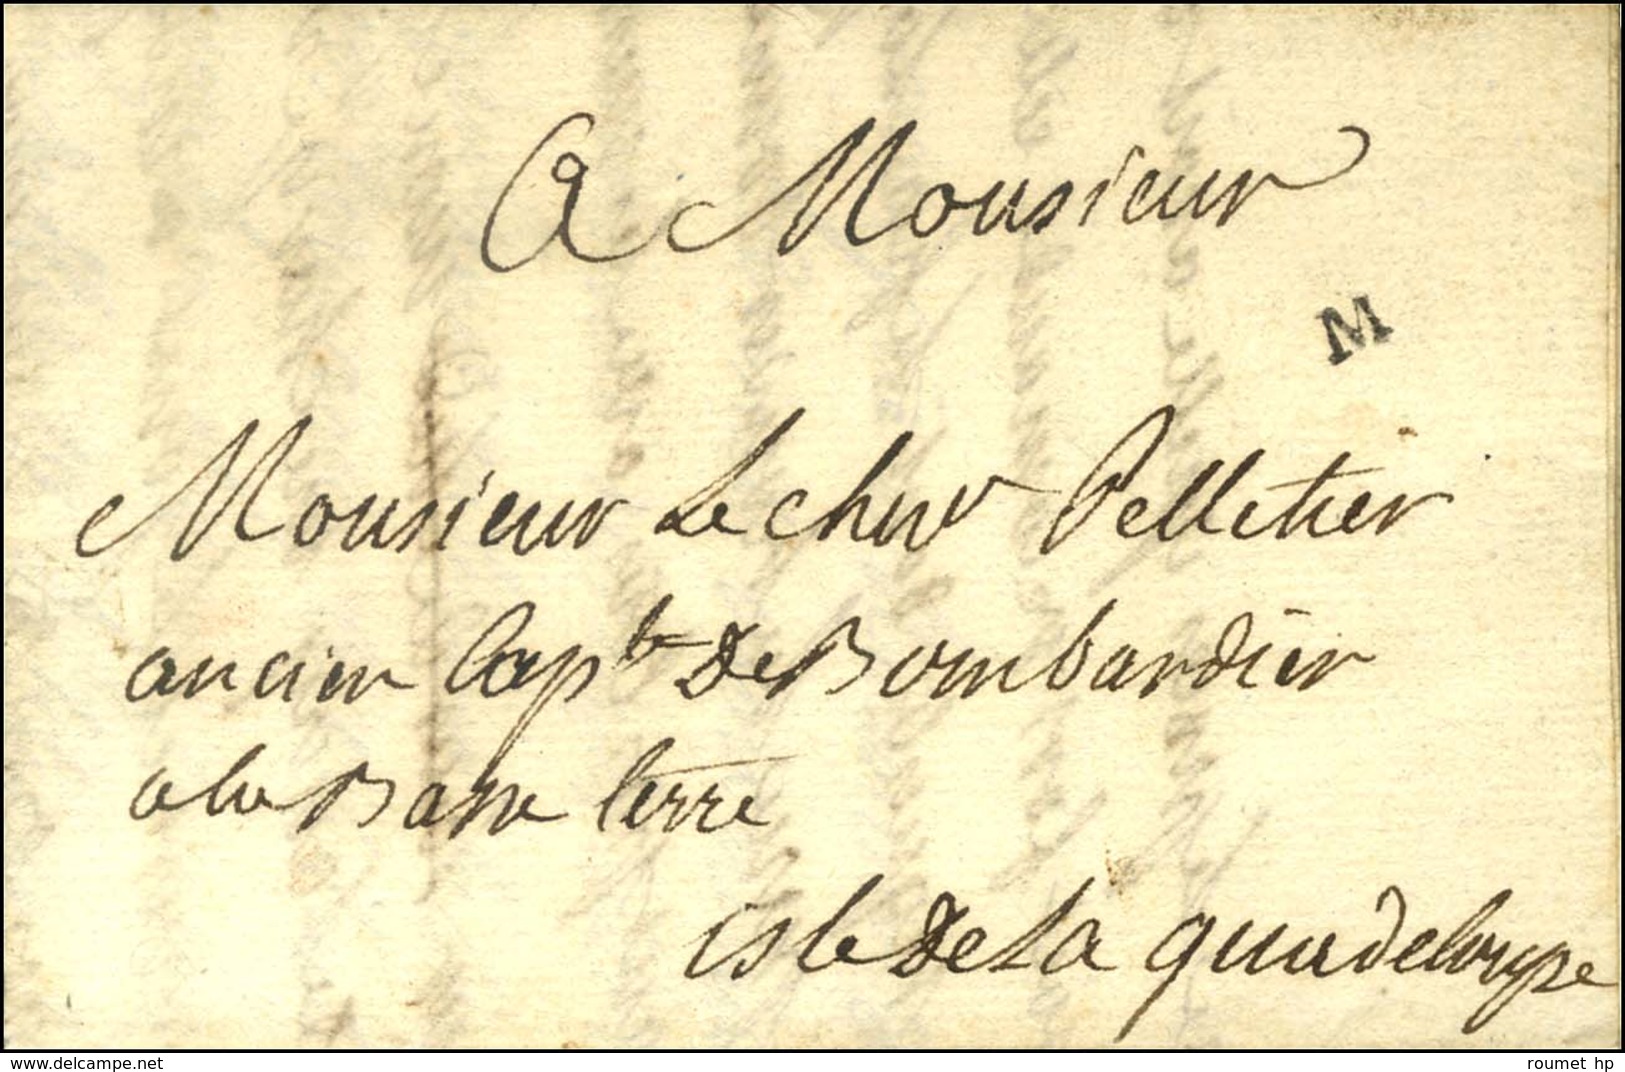 A Monsieur
M
Monsieur Le chev Pelletier
ancien Capte de Bombardier
a la Basse terre
isle de La guadeloupe
www.delcampe.net
roumet hp